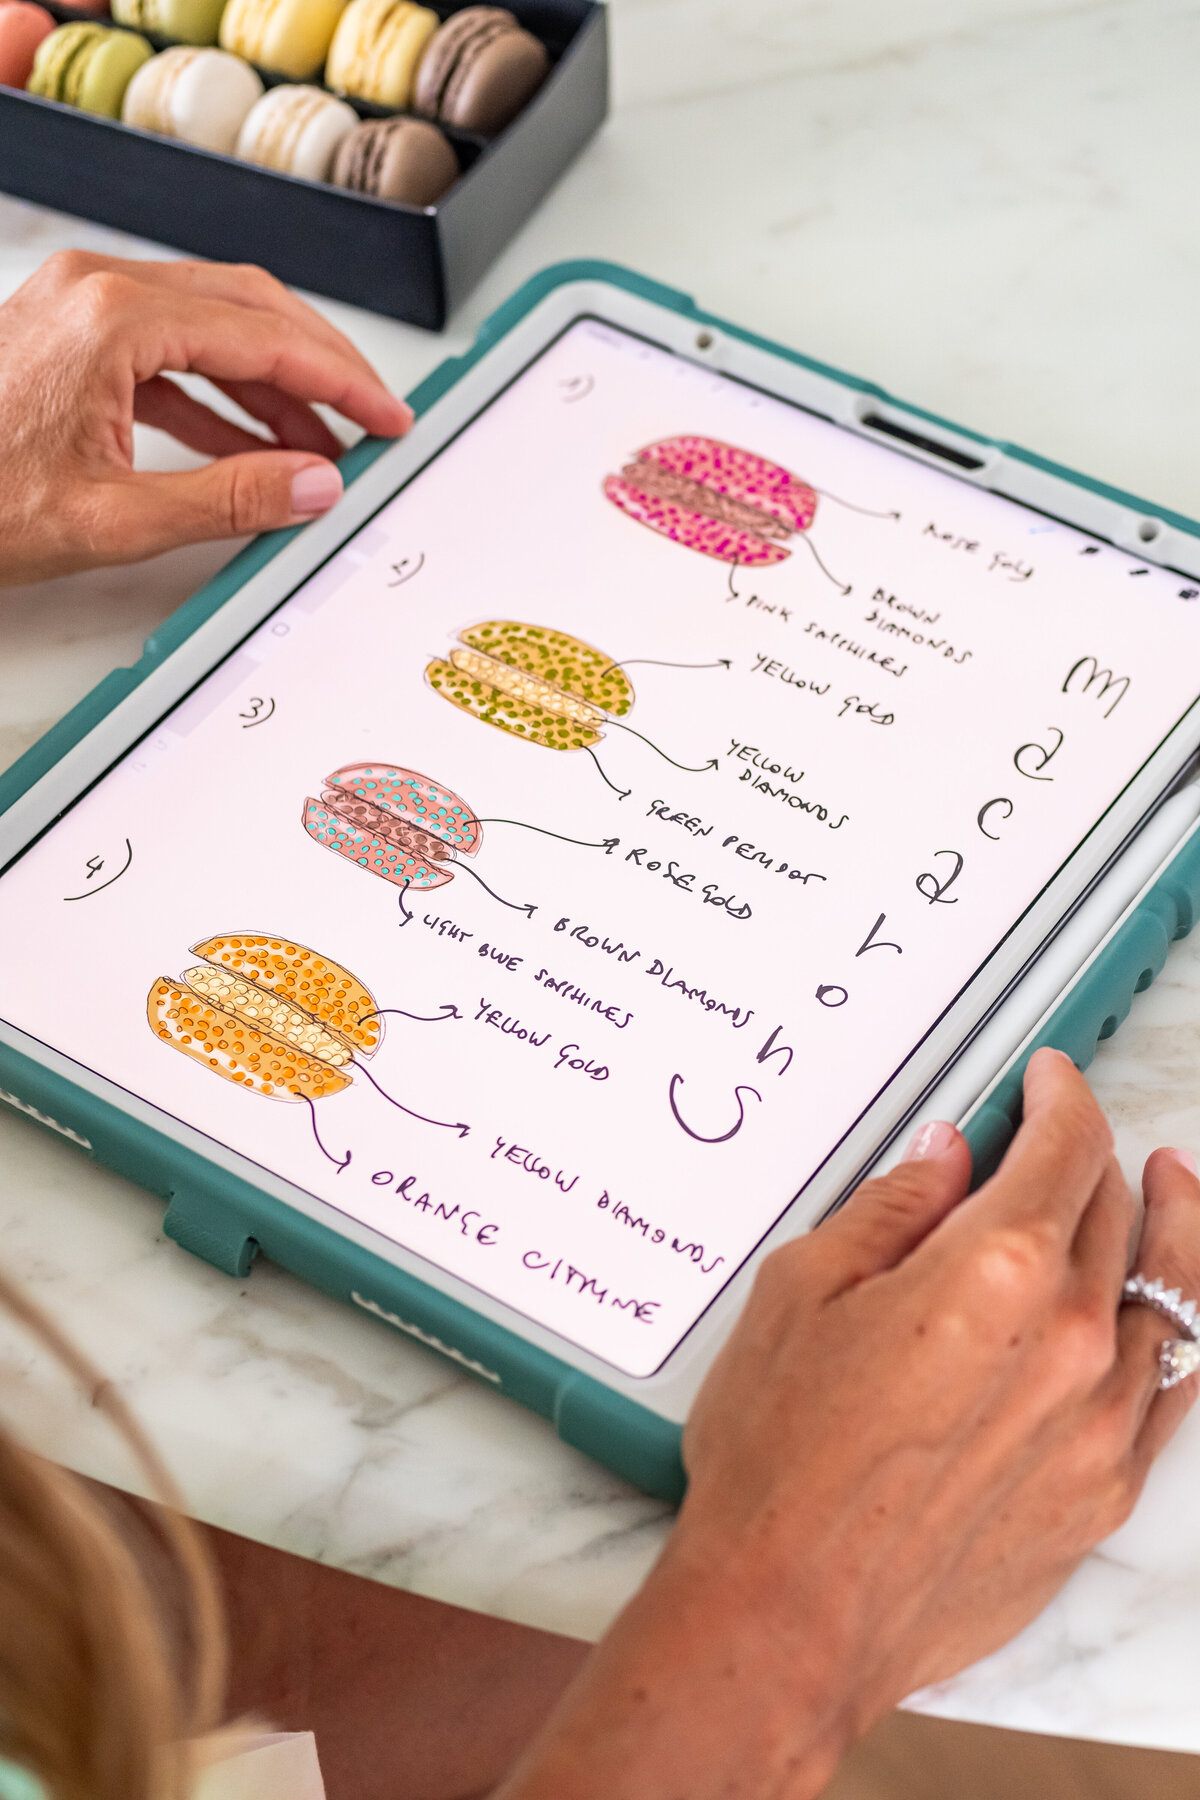 1)
ROSE GOLD
BROWN
DIAMONDS
PINK SAPPHIRES
2)
YELLOW GOLD
YELLOW
DIAMONDS
GREEN PERIDOT
3)
ROSE GOLD
BROWN DIAMONDS
LIGHT BLUE SAPPHIRES
4)
YELLOW GOLD
YELLOW DIAMONDS
ORANGE CITRINE
m
a
c
a
r
o
n
s